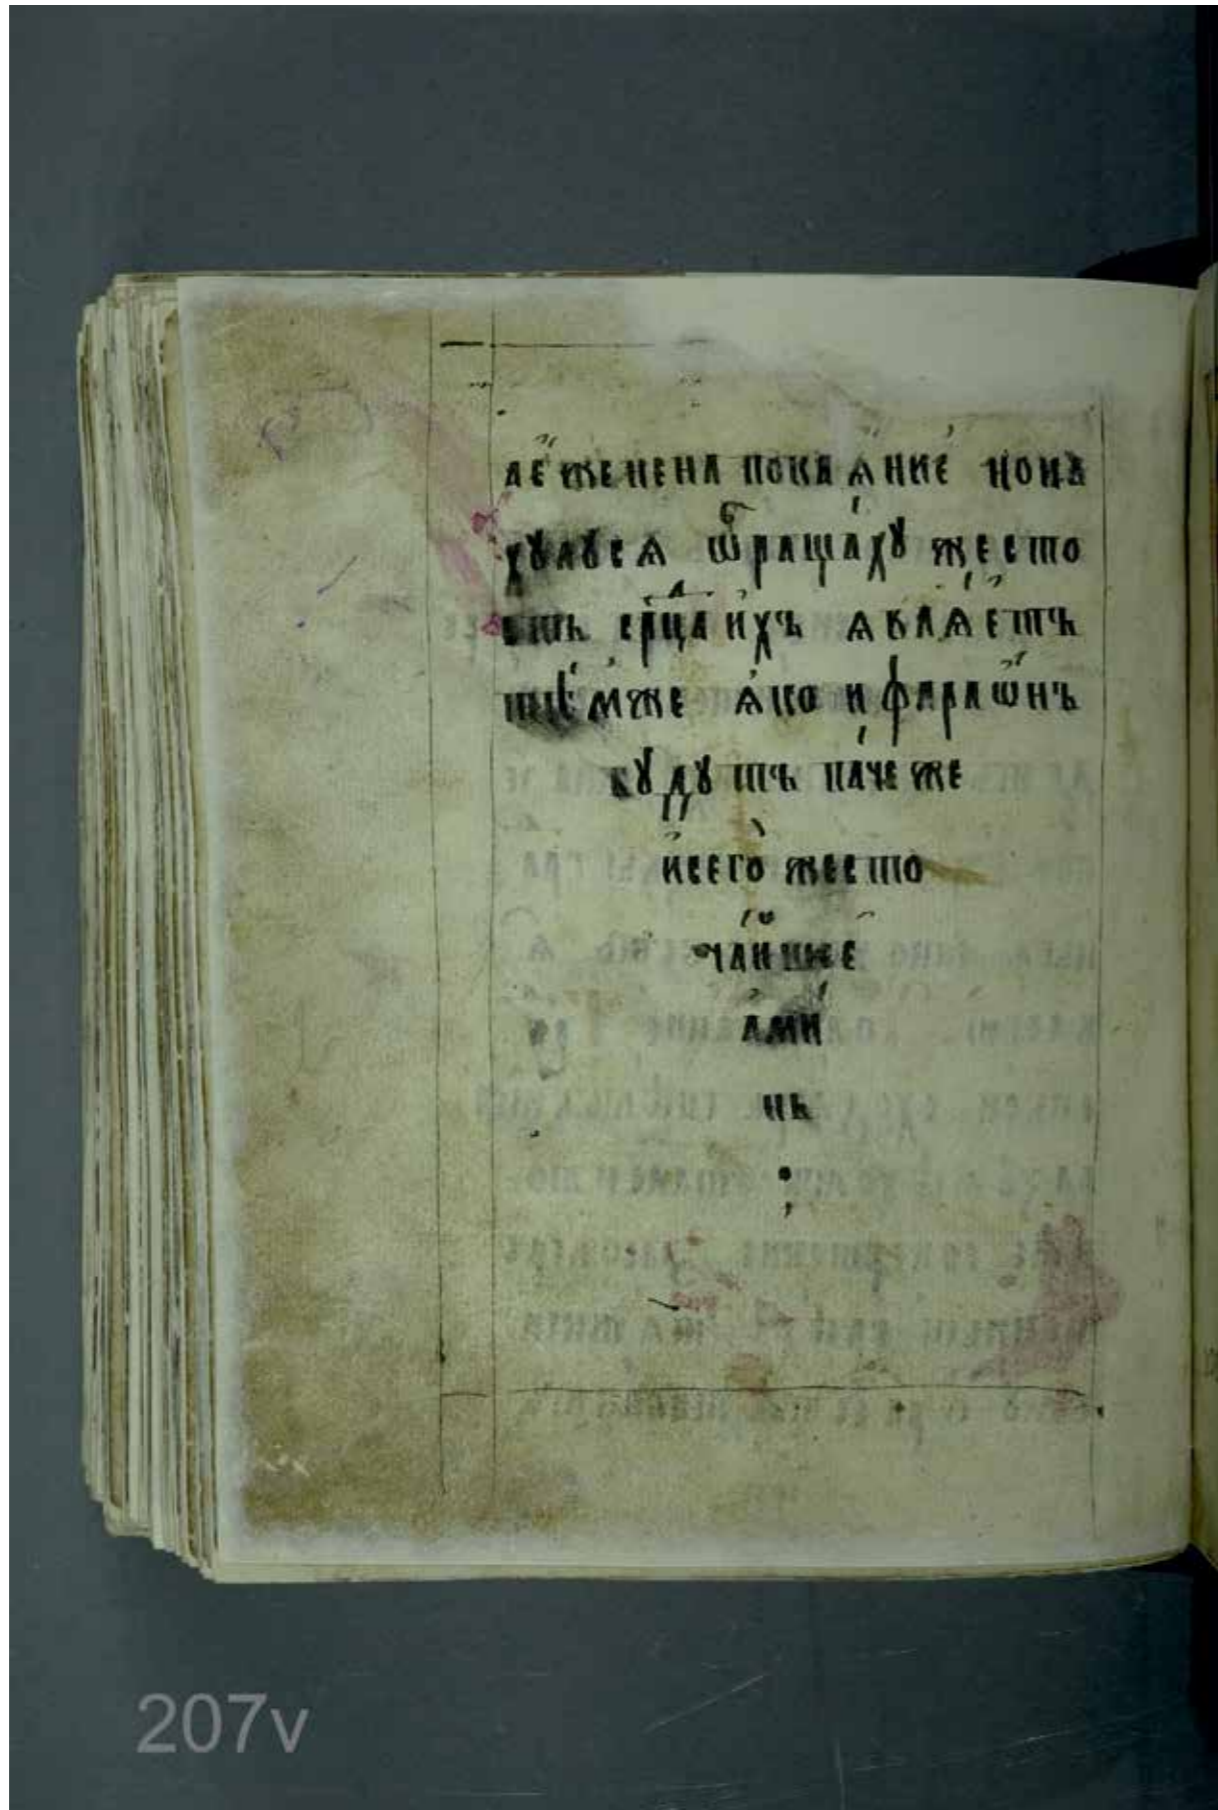 лєженена покаѧние ноиз
хулусѧ ѿращаху жесто
сть срⷣца ихъ ѧвлѧетъ
тѣмже ѧко и фараѡнъ
будутъ паче же
и сего жесто
чаишие
ами
нь
207v